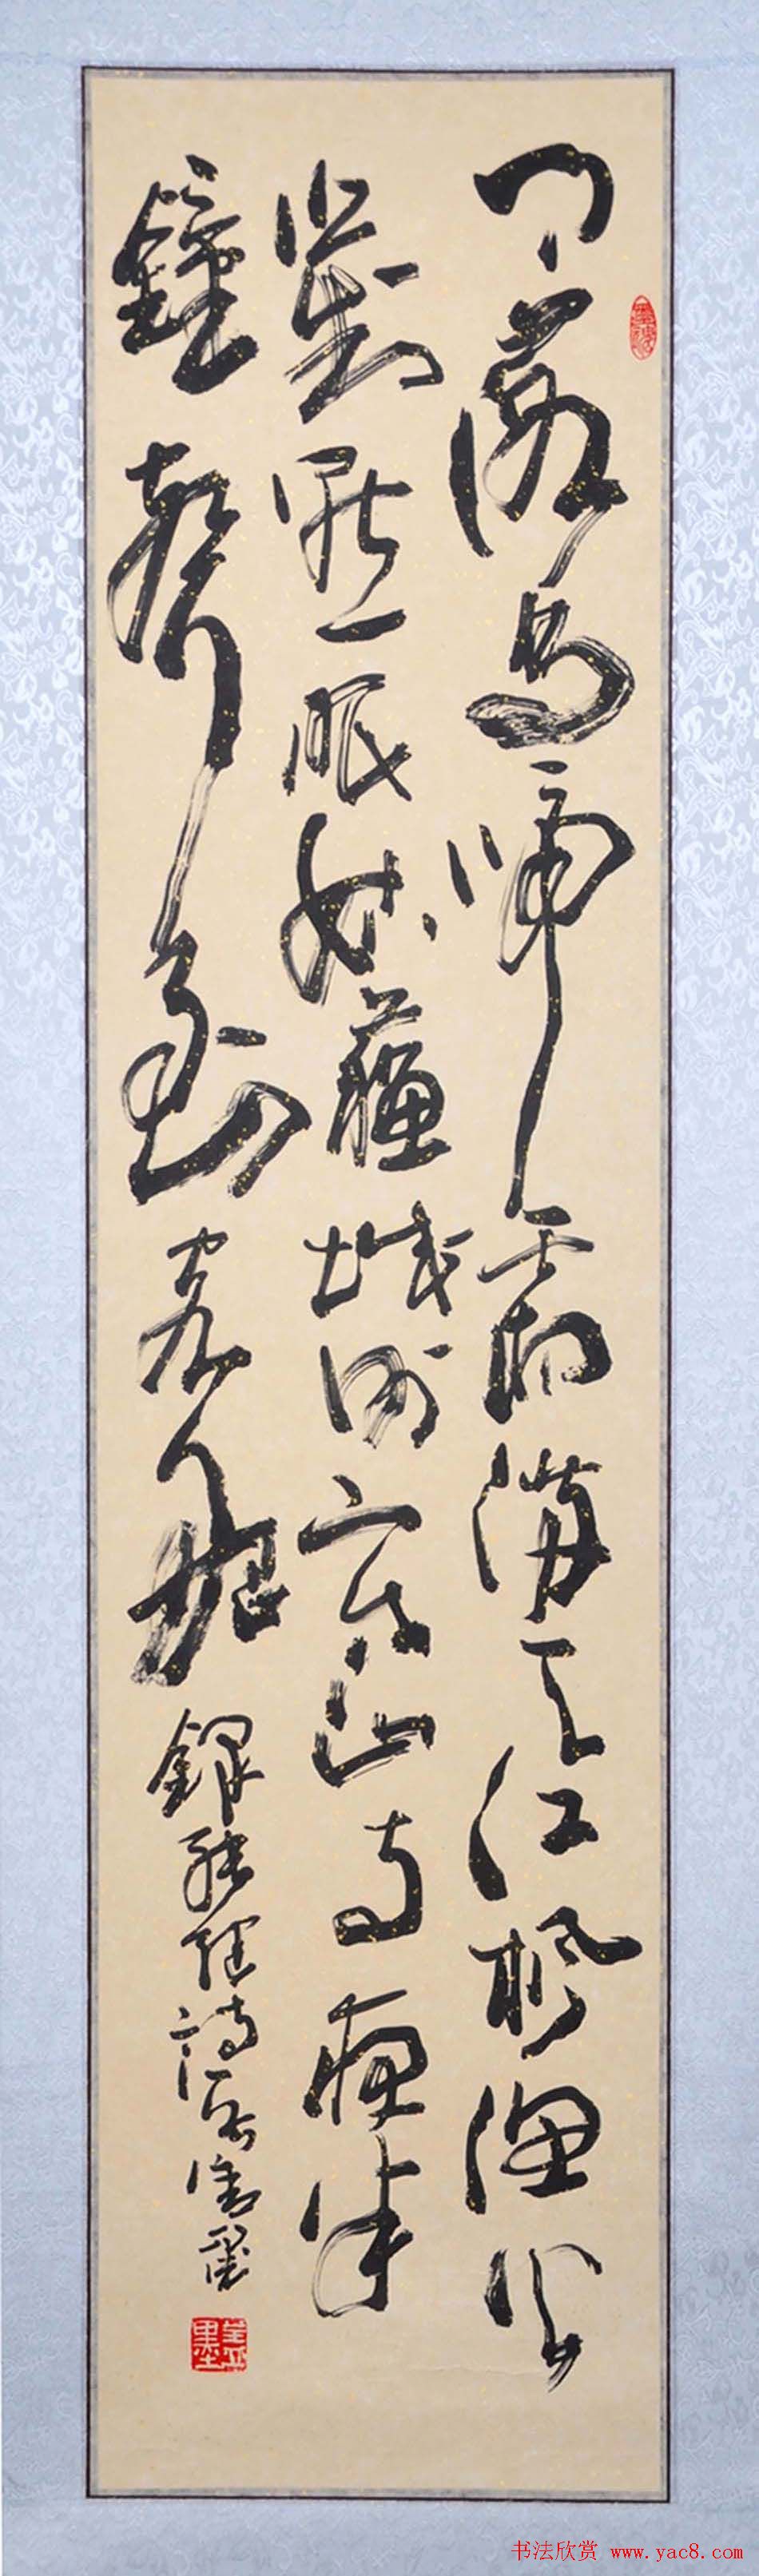 月落烏啼霜滿天江楓漁火
對愁眠姑蘇城外寒山寺夜半
鐘聲到客船
錄張繼詩
书法欣赏 www.yac8.com